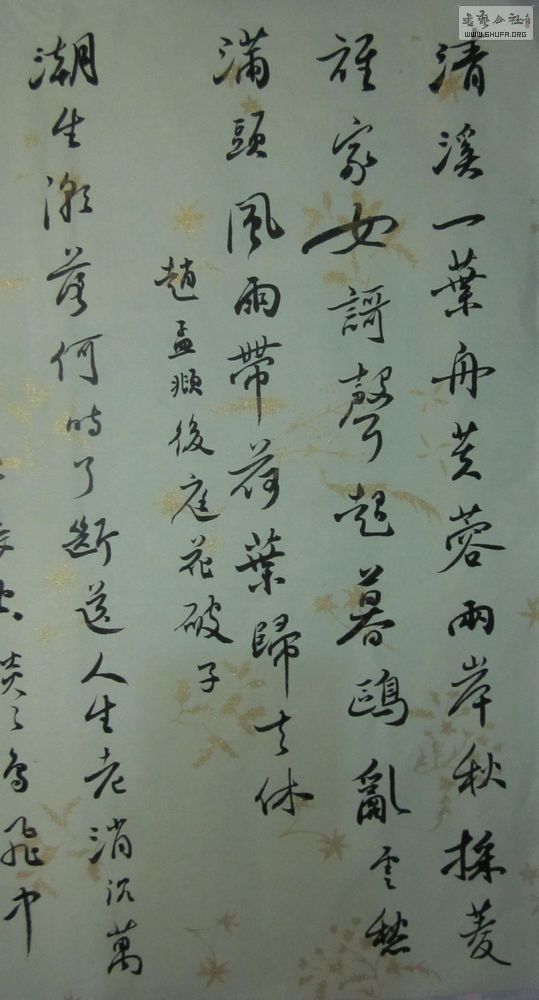 書藝公社
WWW.SHUFA.ORG
清溪一葉舟芙蓉兩岸秋採菱
誰家女謌聲起暮鷗亂雲愁
滿頭風雨帶荷葉歸去休
趙孟頫後庭花破子
潮生潮落何時了斷送人生老消沉萬
淡〻鳥飛中